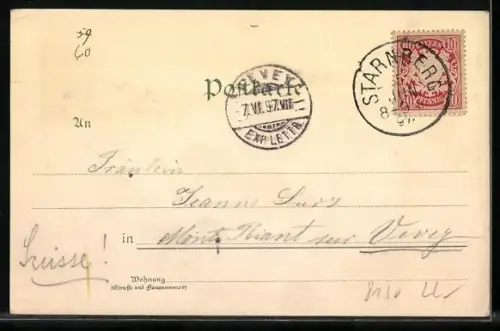 59
60
Postkarte
VEVEY
-7.VI.97.VIII
EXP. LETTR.
STARNBERG
8
97
BAYERN
10
PFENNIG
An
Fräulein
Jeanne
in Mont Riant sur Vevey
Suisse!
Wohnung
(Straße und Hausnummer)
8130